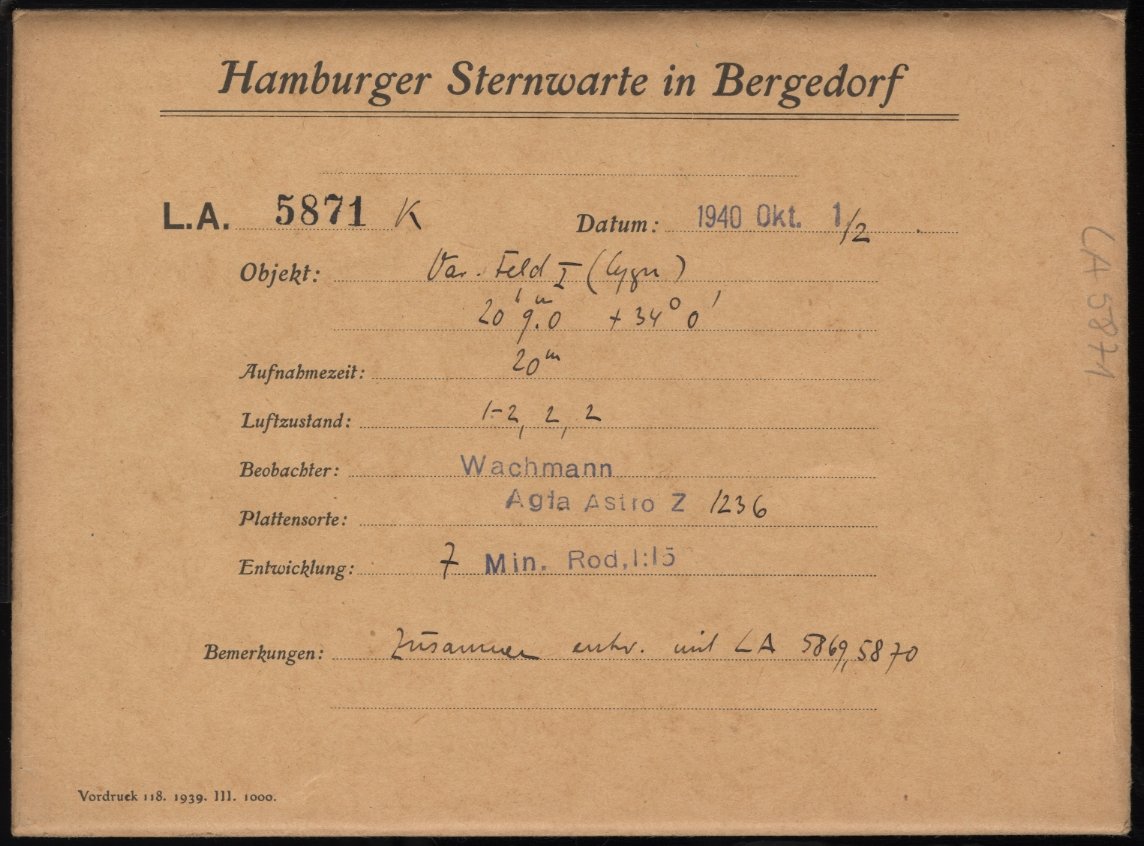 Hamburger Sternwarte in Bergedorf
L.A. 5871 K Datum: 1940 Okt. 1/2
Objekt: Var. Feld I (Cygn)
20ʰ 9ᵐ.0 + 34° 0'
Aufnahmezeit: 20ᵐ
Luftzustand: 1-2, 2, 2
Beobachter: Wachmann
Plattensorte: Agfa Astro Z 1236
Entwicklung: 7 Min. Rod, 1:15
Bemerkungen: Zusammen entw. mit LA 5869, 5870
Vordruck 118. 1939. III. 1000.
LA 5871